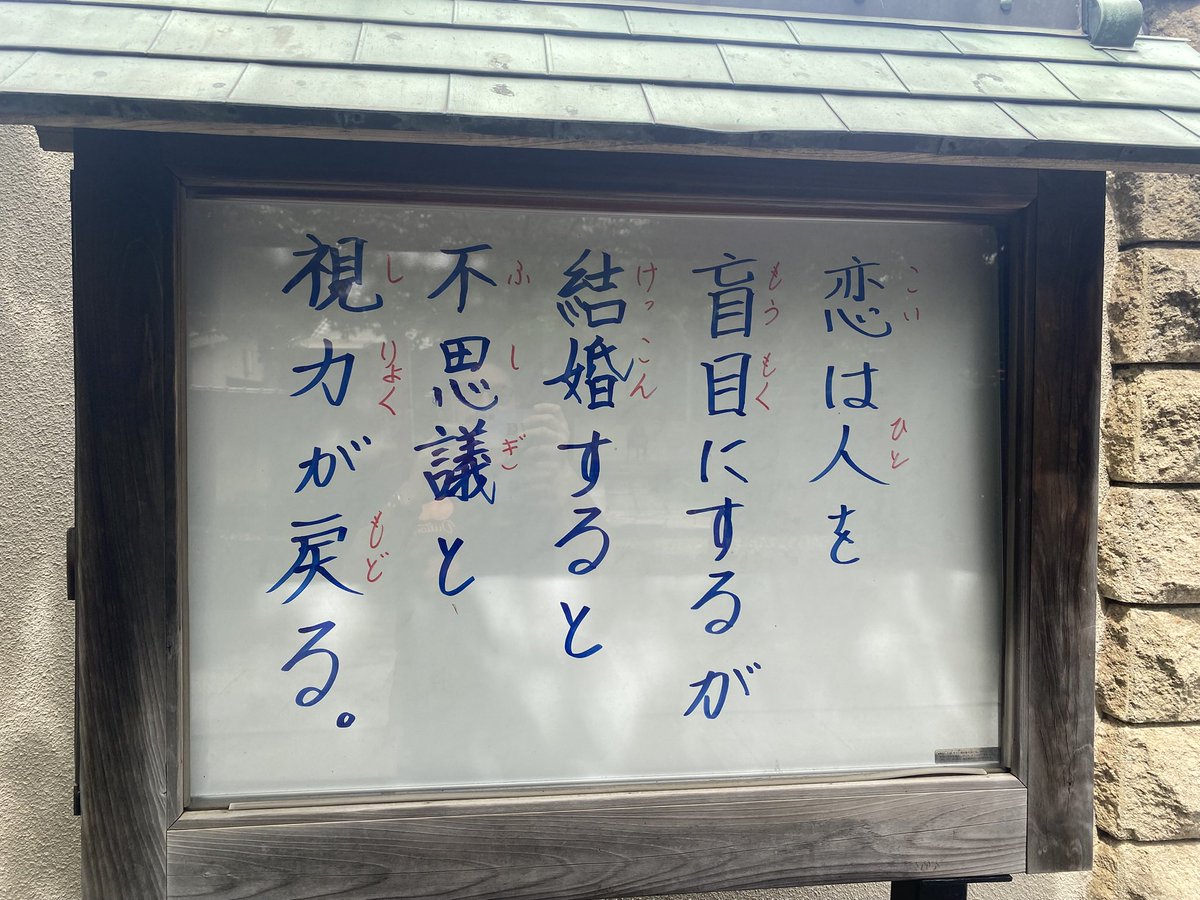 恋は人を
盲目にするが
結婚すると
不思議と
視力が戻る。
こい
ひと
もう
もく
けっ
こん
ふ
し
ぎ
し
りょく
もど